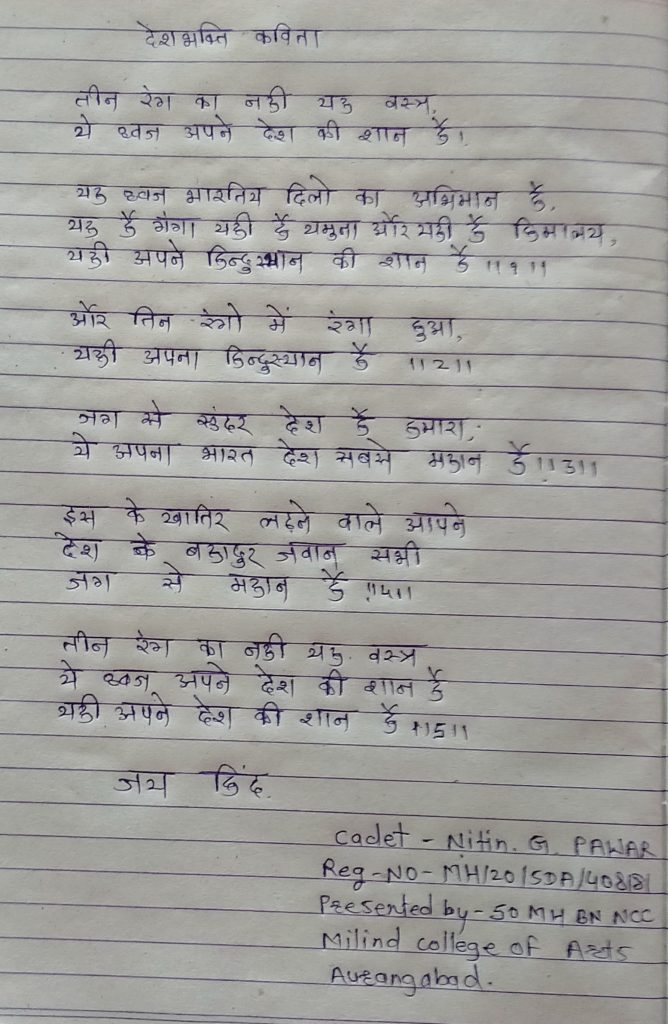 देशभक्ति कविता
तीन रंग का नही यह वस्त्र,
ये ध्वज अपने देश की शान है।
यह ध्वज भारतिय दिलो का अभिमान है,
यह है गंगा यही है यमुना और यही है हिमालय,
यही अपने हिन्दुस्थान की शान है ॥१॥
और तिन रंगो में रंगा हुआ,
यही अपना हिन्दुस्थान है ॥2॥
जग से सुंदर देश है हमारा,
ये अपना भारत देश सबसे महान है॥3॥
इस के खातिर लढ़ने वाले आपने
देश के बहादुर जवान सभी
जग से महान है ॥4॥
तीन रंग का नही यह वस्त्र
ये ध्वज अपने देश की शान है
यही अपने देश की शान है ॥5॥
जय हिंद.
Cadet - Nitin. G. PAWAR
Reg-NO- MH/20/SDA/408181
Presented by - 50 MH BN NCC
Milind college of Arts
Aurangabad.